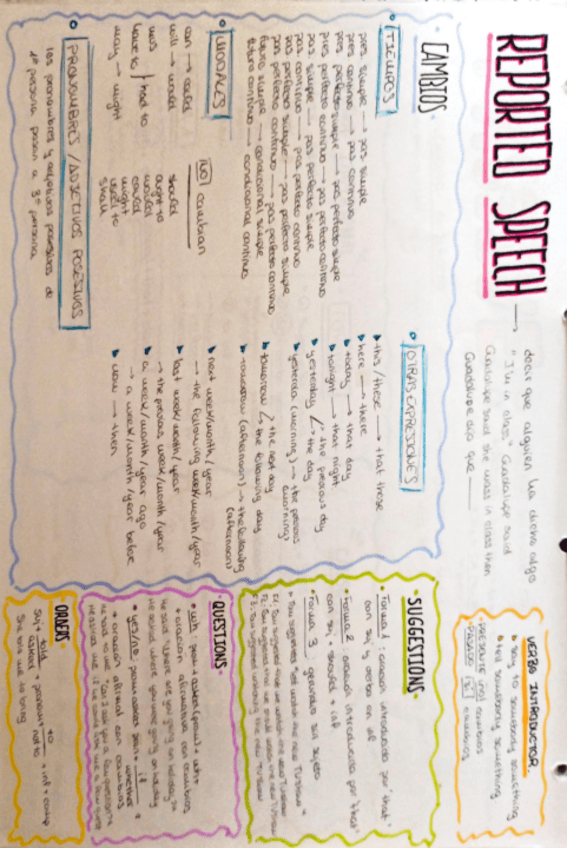 REPORTED SPEECH →
decir que alguien ha dicho algo
"I'm in class" Guadalupe said
Guadalupe said she was in class then
Guadalupe dijo que
VERBO INTRODUCTOR
say to somebody something
tell somebody something
PRESENTE NO cambios
PASADO SÍ cambios
CAMBIOS.
TIEMPOS
pres simple → pas simple
pres continuo → pas continuo
pres perfecto simple → pas perfecto simple
pres perfecto continuo → pas perfecto continuo
pas simple → pas perfecto simple
pas continuo → pas perfecto continuo
pas perfecto simple → pas perfecto simple
pas perfecto continuo → pas perfecto continuo
futuro simple → condicional simple
futuro continuo → condicional continuo
MODALES
can → could
will → would
must
have to / had to
may → might
NO cambian
should
ought to
would
could
might
used to
shall
PRONOMBRES / ADJETIVOS POSESIVOS
los pronombres y adjetivos posesivos de
1ª persona pasan a 3ª persona
OTRAS EXPRESIONES
this/these → that those
here → there
today → that day
tonight → that night
yesterday < the previous day
the day
yesterday (morning) → the previous
(morning)
tomorrow < the next day
the following day
tomorrow (afternoon) → the following
(afternoon)
next week/month/year
→ the following week/month/year
last week/month/year
→ the previous week/month/year
a week/month/year ago
→ a week/month/year before
now → then
SUGGESTIONS.
Forma 1: oración introducida por "that"
con suj y verbo en inf
Forma 2: oración introducida por "that"
con suj + should + inf
Forma 3: gerundio sin sujeto
QUESTIONS.
+ oración afirmativa con cambios
He said "Where are you going on holiday"
He asked where you were going on holiday
yes/no:
+ oración afirmat con cambios
ORDERS.
suj + told
asked + pronom + to
not to + inf + comp
She told me to bring